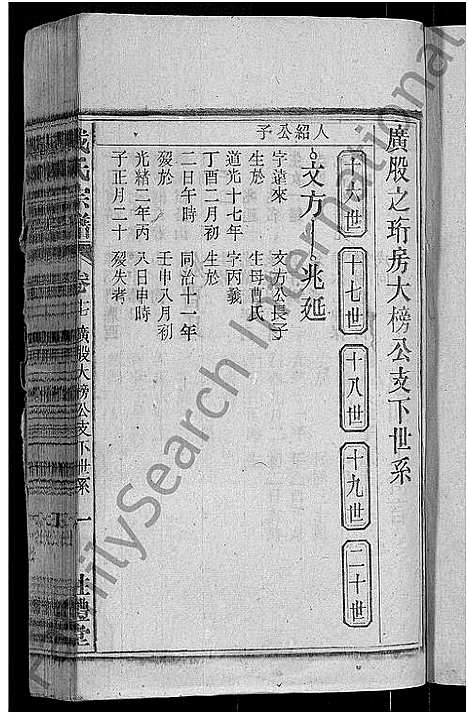 廣股之珩房大榜公支下世系
十六世 十七世 十八世 十九世 二十世
人紹公子
文方 兆延
字遠來
生於
道光十七年
丁酉二月初
二日午時
歿於
光緒二年丙
子正月二十
文方公長子
生母曹氏
字丙義
生於
同治十一年
壬申八月初
八日申時
歿失考
氏宗譜 卷十七 廣股大榜公支下世系 一
禮堂
FamilySearch International